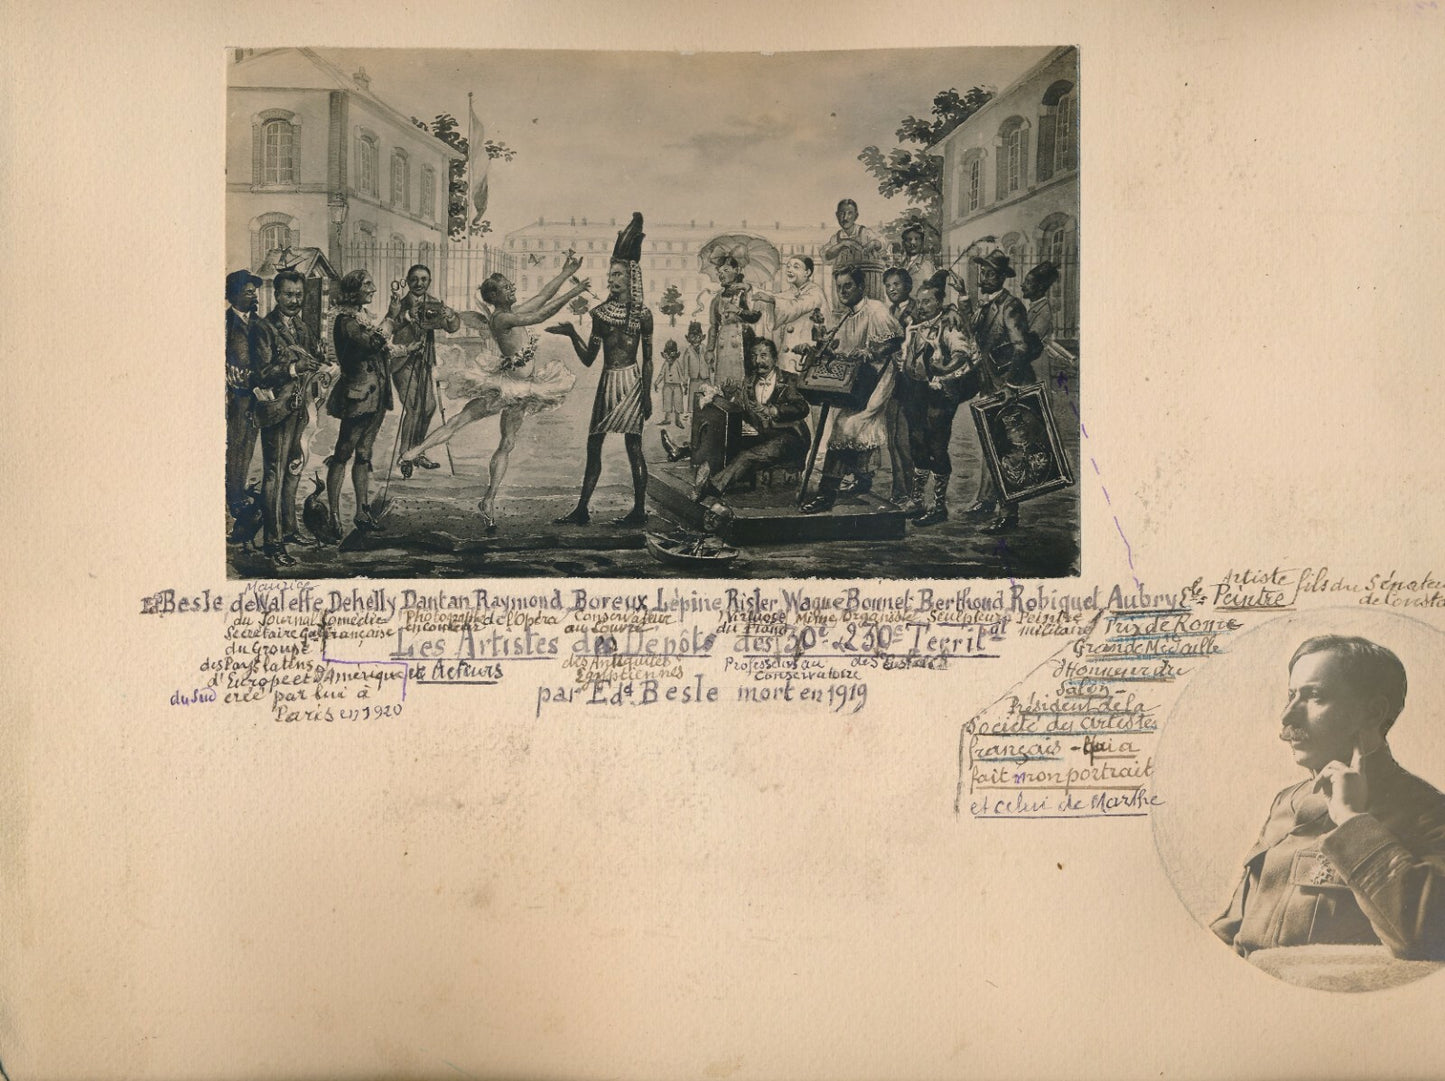 Maurice
Ed Besle de Waleffe Dehelly Dantan Raymond Boreux Lépine Risler Wague Bonnet Berthoud Robiquet Aubry
Artiste
Peintre
fils du Sénateur
de Constantine
du Journal
Secretaire Gal
du Groupe
des Pays latins
d'Europe et d'Amérique
du Sud créé par lui à
Paris en 1920
Comédie
française
Photographe
de l'Opéra
Conservateur
au Louvre
des Antiquités
Egyptiennes
Virtuose
du Piano
Professeur au
Conservatoire
Mime
Organiste
de St Eustache
Sculpteur
Peintre
militaire
Les Artistes des Dépôts des 30e & 230e Territal
et Acteurs
par Edd. Besle mort en 1919
Prix de Rome
Grande Médaille
d'Honneur du
Salon -
Président de la
Société des Artistes
français - Qui a
fait mon portrait
et celui de Marthe